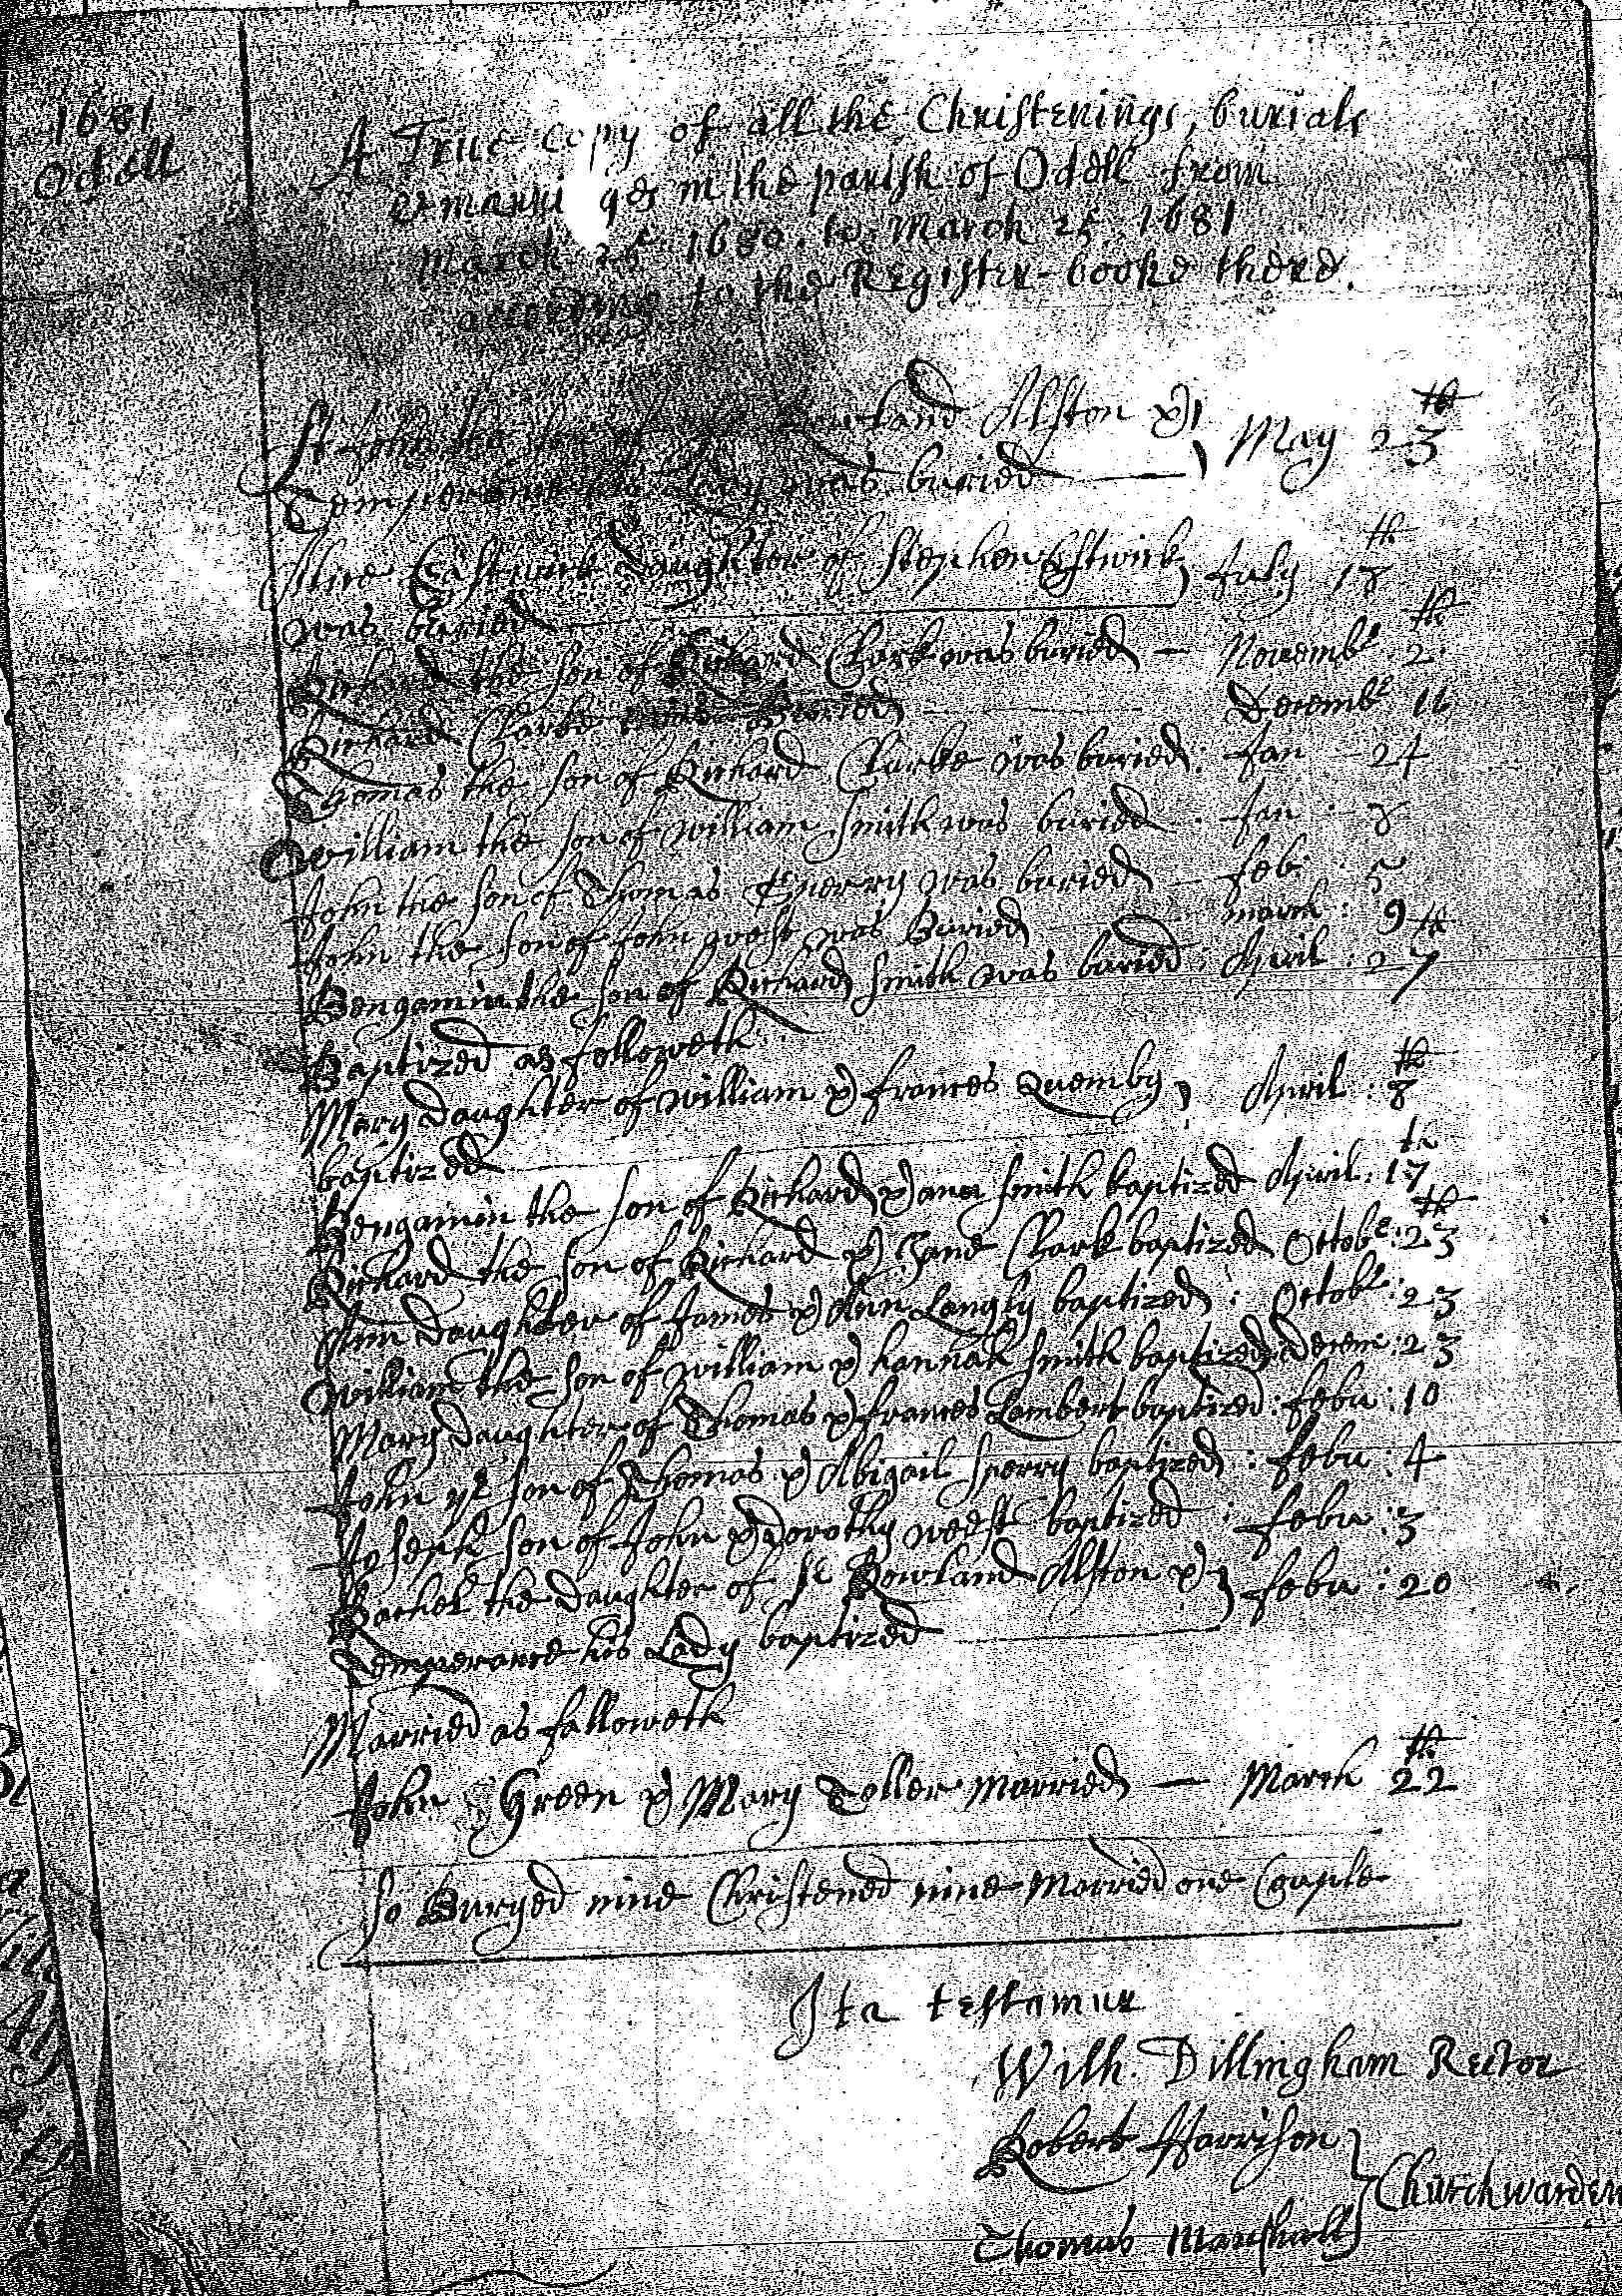 1681
Odell
A True copy of all the Christenings, burials
& marriages in the parish of Odell from
March 25. 1680. to March 25. 1681
according to the Register-booke there.
John the son of Rowland Alston &
Temperance his Lady was buried May 23th
Alice Eastwick daughter of Stephen Estwick
was buried July 18th
Richard the son of Richard Clark was buried — Novembr 2th
Richard Clarke was buried Decembr 11
Thomas the son of Richard Clarke was buried: Jan 24
William the son of William Smith was buried: Jan 8
John the son of Thomas was buried — feb: 5
John the son of John West was Buried march: 9
Bengamin the son of Richard Smith was buried: April: 27th
Baptized as followeth
Mary Daughter of William & frances Quemby
baptized April: 8th
Bengamin the son of Richard & ann Smith baptized April: 17th
Richard the son of Richard & Jane Clark baptized Octobr: 23th
Ann Daughter of James & Ann Langly baptized: Octobr: 23
William the son of William & hannah Smith baptized Decem: 23
Mary Daughter of Thomas & frances Lambert baptized: febu: 10
John ye son of Thomas & Abigail Sperry baptized: febu: 4
Joseph son of John & Dorothy Weest baptized: febu: 3
Rachel the Daughter of Sr Rowland Alston &
Temperance his Lady baptized febu: 20
Married as followeth
John Green & Mary Toller Married — March 22th
So Buryed nine Christened nine Married one Couple
Ita testamur
Willm. Dillingham Rector
Robert Harrison
Thomas Marshall } Churchwarden